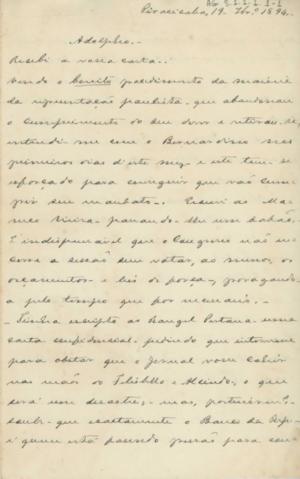 Piracicaba, 19. Fbrº 1894.
Adolpho.
Recebi a vossa carta.
Vendo o bonito procedimento da maioria
da representação paulista, que abandonou
o cumprimento do seu dever e retirou-se,
entendi-me com o Bernardino nos
primeiros dias d'este mez e este tem-se
esforçado para conseguir que vão cum-
prir seu mandato. Escrevi ao Ma-
noel Vieira, passando-lhe um sabão.
É indispensavel que o Congresso não en-
cerre a sessão sem votar, ao menos, os
orçamentos e leis de força, prorogando-
a pelo tempo que for necessario.
Tinha escripto ao Rangel Pestana uma
carta confidencial, pedindo que interviesse
para obstar que o Jornal vosse cahir
nas mãos do Filinto e Alcindo, o que
será um desastre, mas, posteriormente,
soube que exactamente o Banco da
é quem está fazendo pressão para